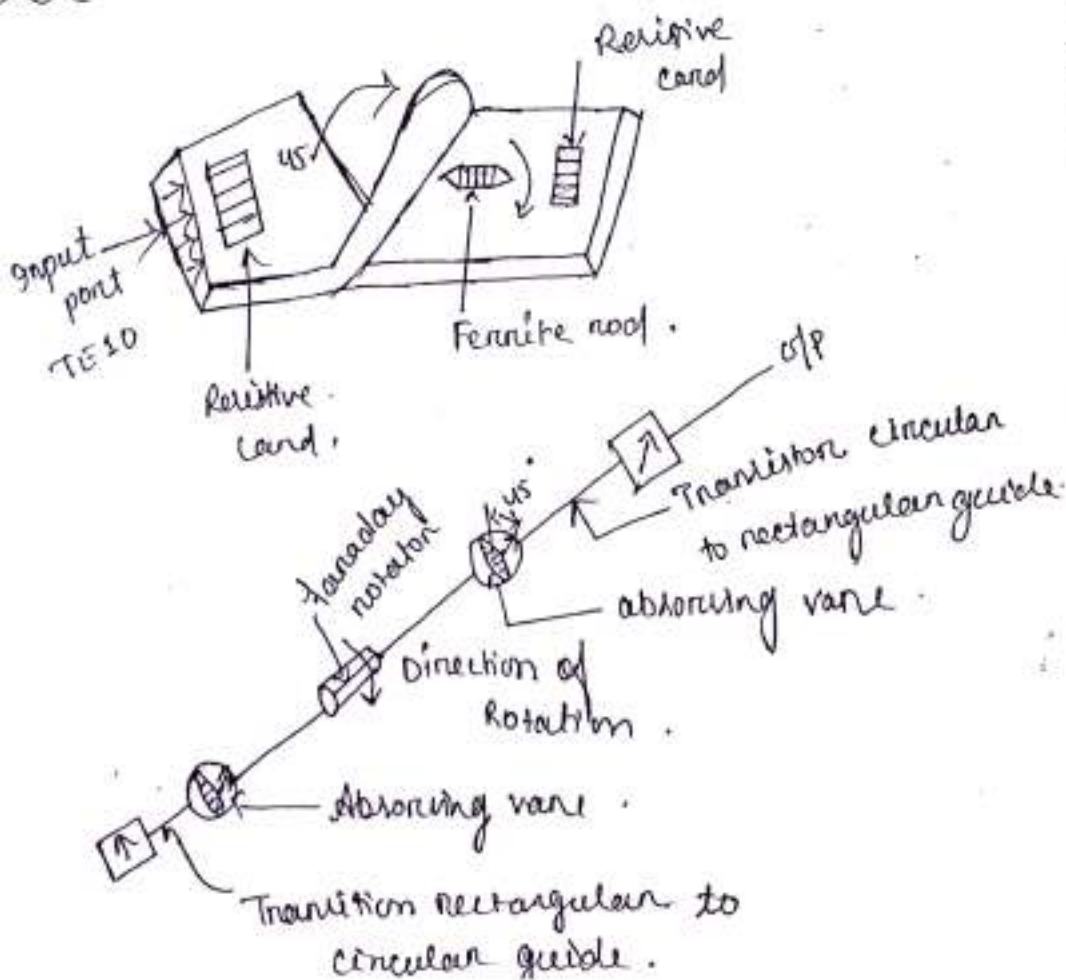 Resistive
card
45
Input
port
TE10
Ferrite rod.
Resistive.
card.
o/p
Transistor circular
to rectangular guide.
45°
absorving vane.
faraday
rotator
Direction of
Rotation.
Absorving vane.
Transition rectangular to
circular guide.